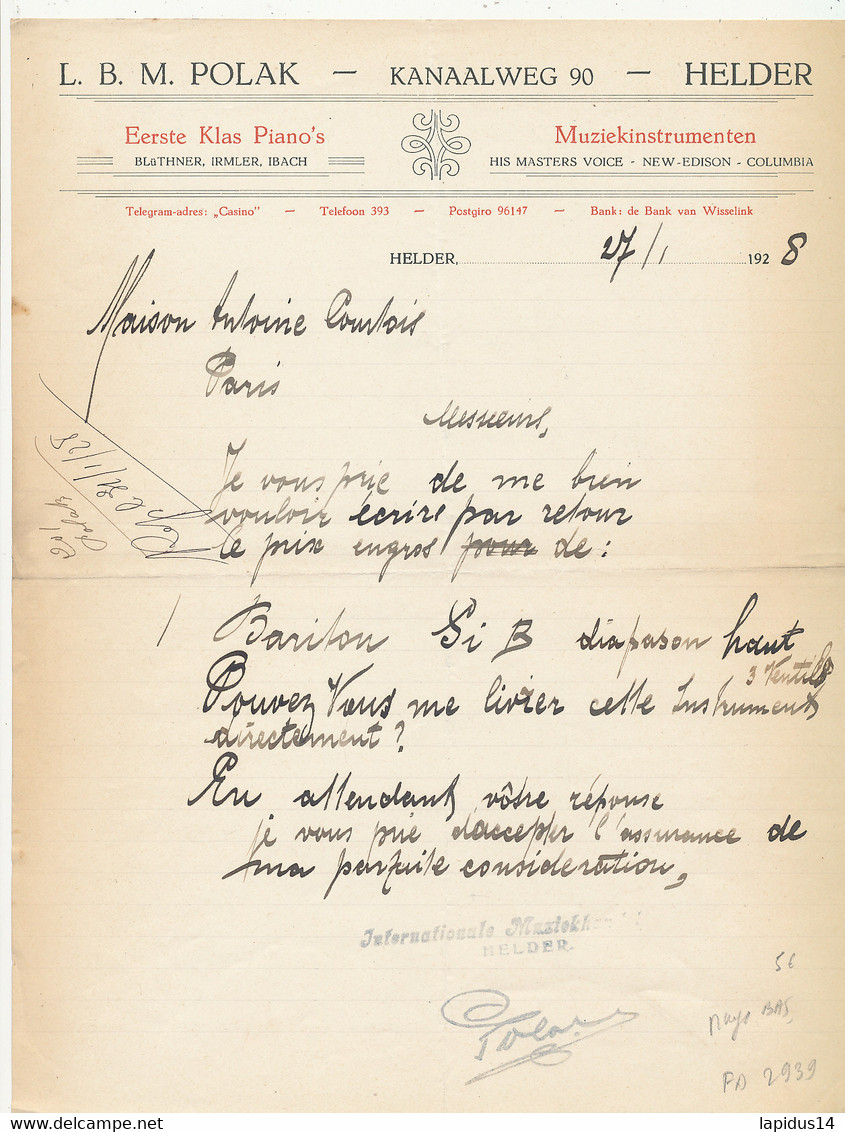 L. B. M. POLAK — KANAALWEG 90 — HELDER
Eerste Klas Piano's
BLüTHNER, IRMLER, IBACH
Muziekinstrumenten
HIS MASTERS VOICE - NEW-EDISON - COLUMBIA
Telegram-adres: „Casino" — Telefoon 393 — Postgiro 96147 — Bank: de Bank van Wisselink
HELDER, 27/1 1928
Maison Antoine Courtois
Paris
Messieurs,
Je vous prie de me bien
vouloir écrire par retour
le prix engros pour de :
1 Bariton Si B diapason haut
3 Ventils
Pouvez Vous me livrer cette Instrument
directement ?
En attendant vôtre réponse
je vous prie d'accepter l'assurance de
ma parfaite consideration,
Rep le 31/1/28
Internationale Muziekh
HELDER.
Polak
56
Pays BAS,
FA 2939
lapidus14